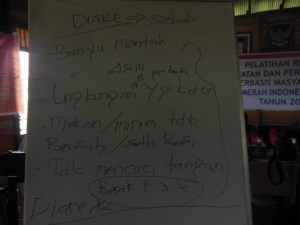 DIARE => Sebab
- Banyu mantah
Asin
- Lngkungan Yg kotor
- Makan/minum tdk
Bersih/
- Tdk mencuci tangan
Berak > 3 X
Diare
PELATIHAN
ATAN DAN PER
BERBASIS MASYA
MERAH INDONE
TAHUN 20